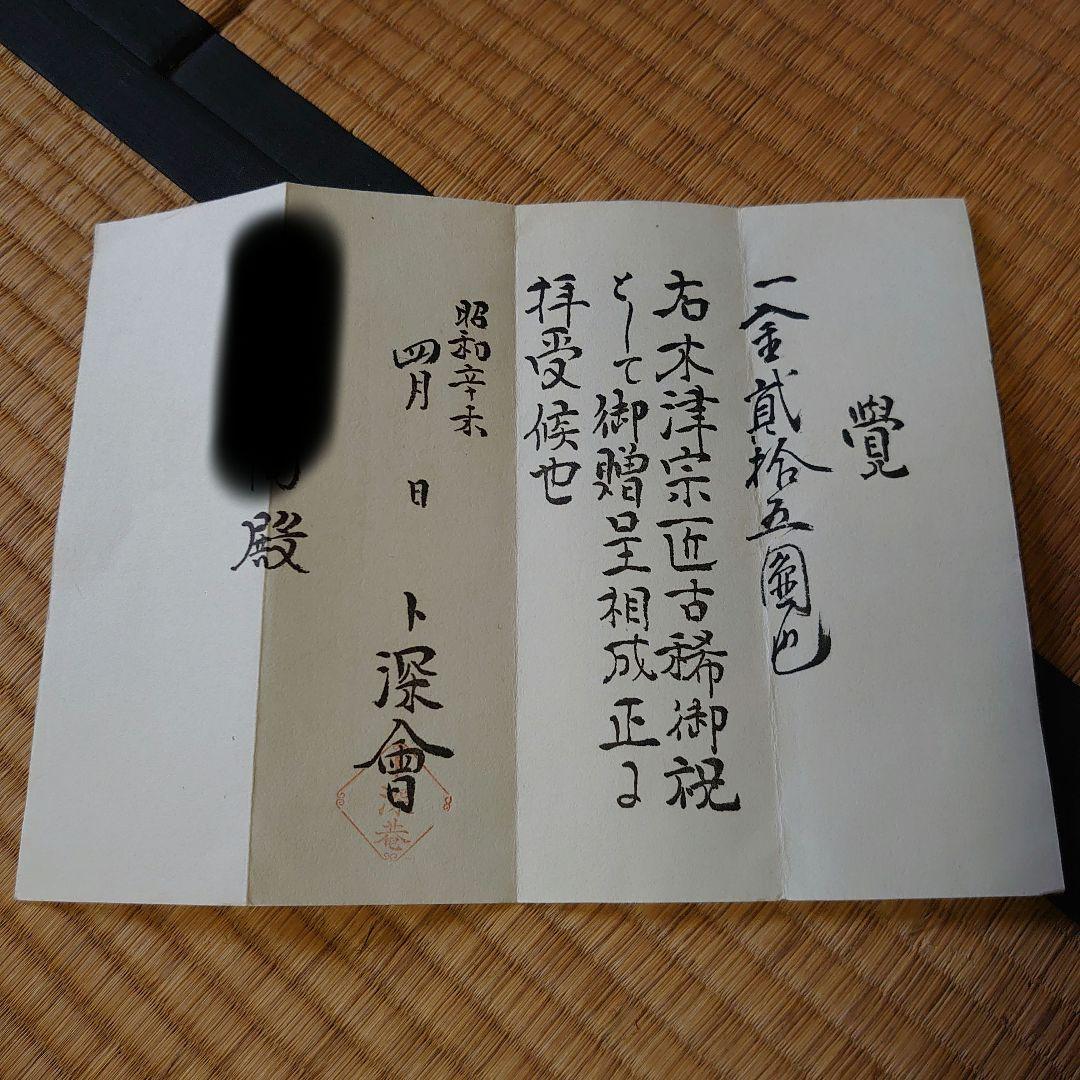 覺
一金貳拾五圓也
右木津宗匠古稀御祝
として御贈呈相成正に
拝受候也
昭和辛未
四月 日
卜深會
殿
深菴